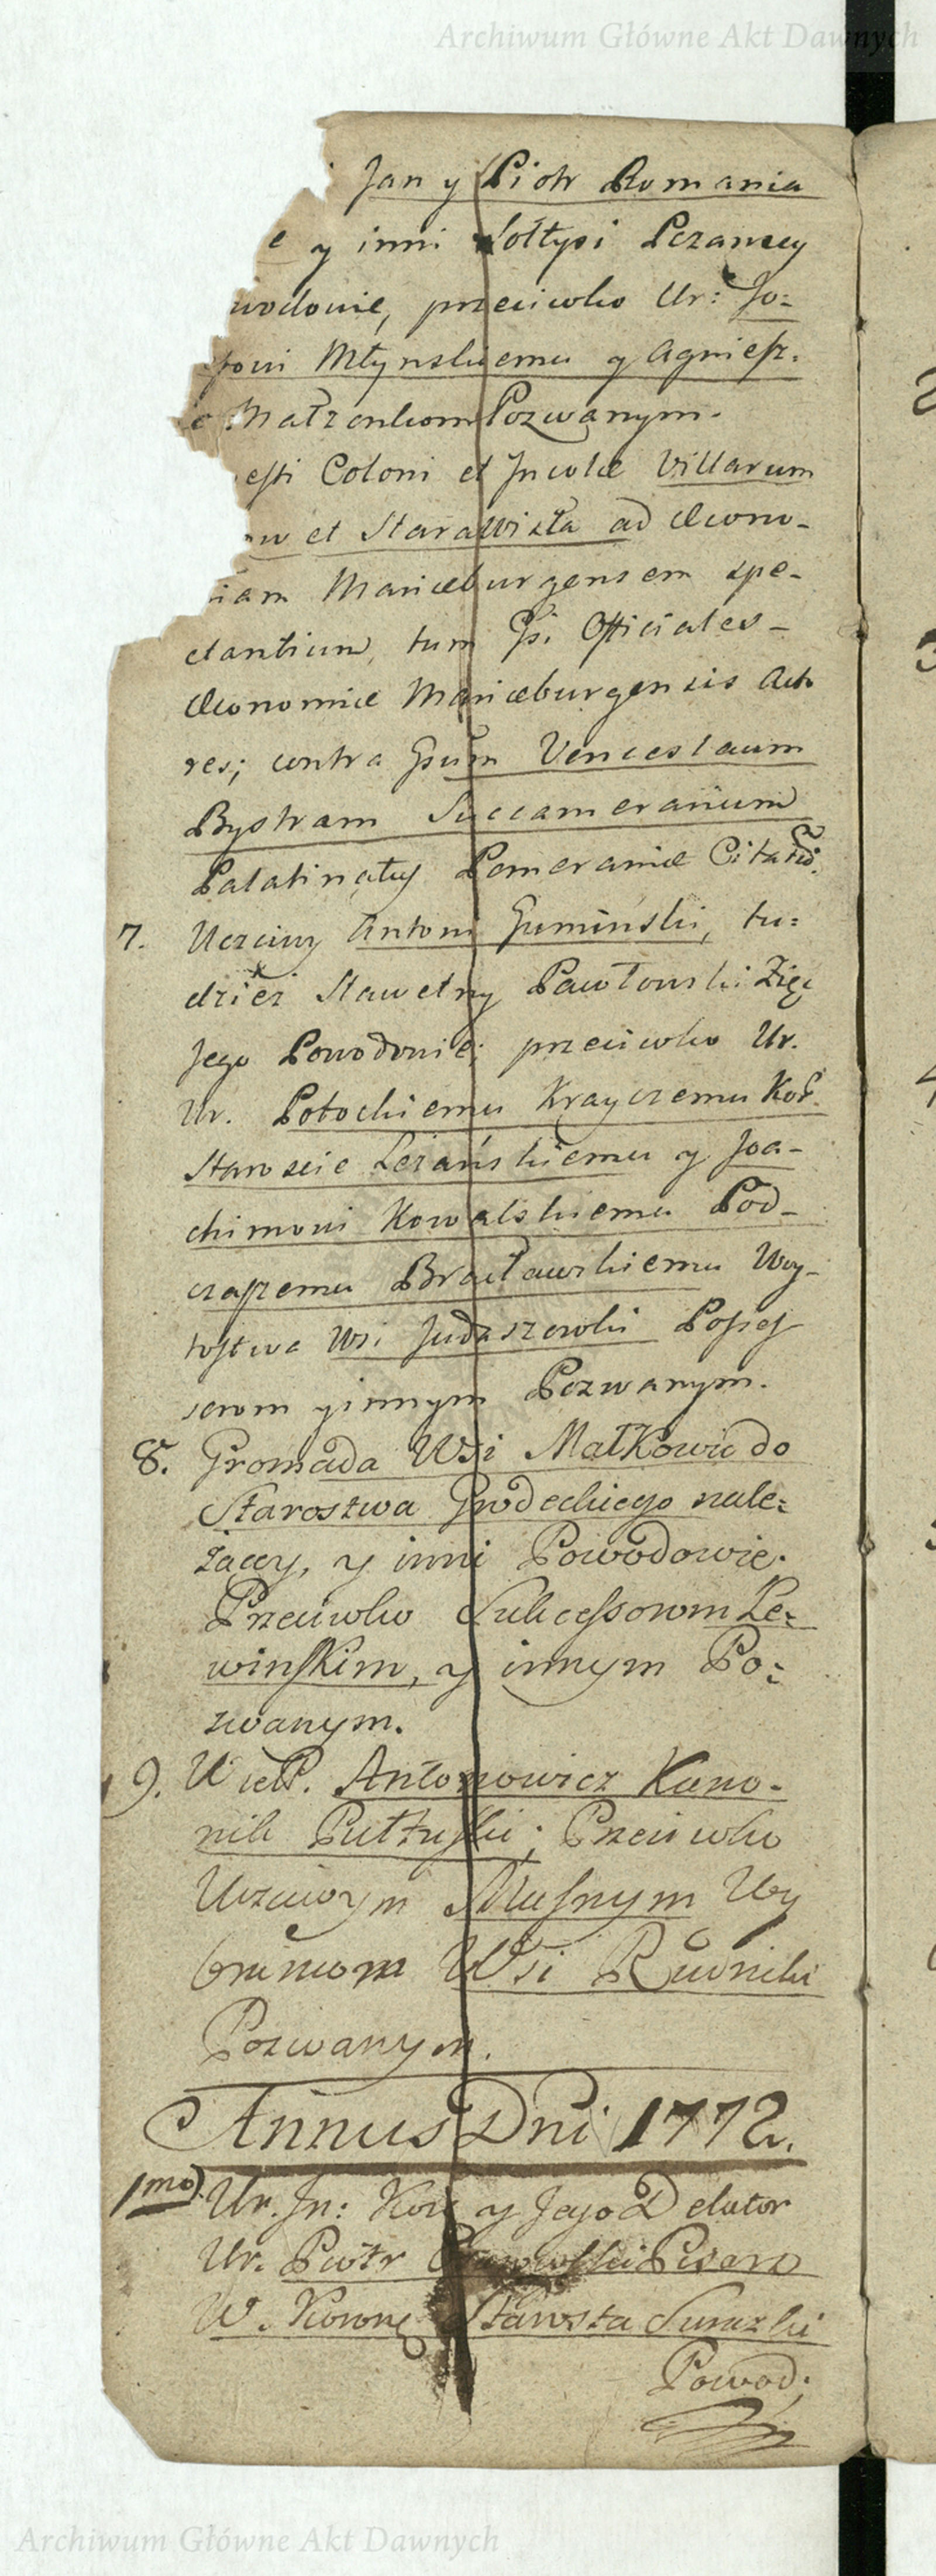 Archiwum Główne Akt Dawnych
Jan y Piotr Romania
e y inni Sołtysi Leżanscy
wodowie, przeciwko Ur: Jo-
sfowi Młynskiemu y Agniesz-
e Małżonkom Pozwanym.
esti Coloni et Incolæ Villarum
ow et Starawizła ad Œcono-
miam Mariæburgensem spe-
ctantium, tum Gsi Officiales
Œconomiæ Mariæburgensis Acto
res; contra Gsum Venceslaum
Bystram Succamerarium
Palatinatus Pomeraniæ Citatū.
7. Uczciwy Antoni Gumiński, tu-
dzież Sławetny Pawłowski Zięć
Jego Powodowie; przeciwko Ur.
Ur. Potockiemu Krayczemu Kor.
Staroście Leżańskiemu y Joa-
chimowi Kowalskiemu Pod-
czaszemu Bracławskiemu Woy-
tostwa Wsi Judaszowki Posses
sorom y innym Pozwanym.
8. Gromada Wsi Małkowic do
Starostwa Grodeckiego nale-
żący, y inni Powodowie.
Przeciwko Sukcessorom Le-
winskim, y innym Po-
zwanym.
9. Wiel. Antonowicz Kano-
nik Pułtuski; Przeciwko
Uczciwym Musnym Wy
brancom Wsi Rudniki
Pozwanym.
Annus Dni 1772.
1mo). Ur. In: Kor y Jego Delator
Ur. Piotr Pisarz
W. Koronę Starosta Surazki
Powod;
Archiwum Główne Akt Dawnych